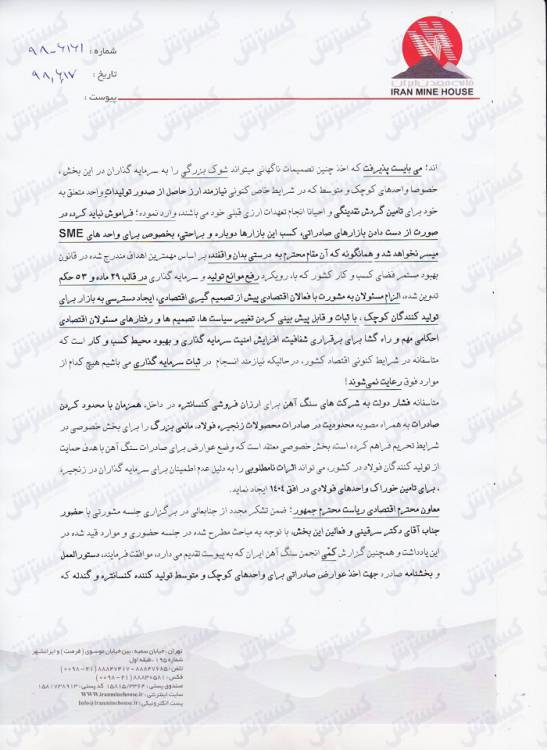 IRAN MINE HOUSE
شماره : ۹۸-۶۱۶۱
تاریخ : ۹۸,۶,۱۷
پیوست :
اند؛ می بایست پذیرفت که اخذ چنین تصمیمات ناگهانی میتواند شوک بزرگی را به سرمایه گذاران در این بخش ،
خصوصا واحدهای کوچک و متوسط که در شرایط خاص کنونی نیازمند ارز حاصل از صدور تولیدات واحد متعلق به
خود برای تامین گردش نقدینگی و احیانا انجام تعهدات ارزی قبلی خود می باشند، وارد نموده؛ فراموش نباید کرده در
صورت از دست دادن بازارهای صادراتی، کسب این بازارها دوباره و براحتی، بخصوص برای واحد های SME
میسر نخواهد شد و همانگونه که آن مقام محترم به درستی بدان واقفند، بر اساس مهمترین اهداف مندرج شده در قانون
بهبود مستمر فضای کسب و کار کشور که با، رویکرد رفع موانع تولید و سرمایه گذاری در قالب ۲۹ ماده و ۵۳ حکم
تدوین شده، الزام مسئولان به مشورت با فعالان اقتصادی پیش از تصمیم گیری اقتصادی، ایجاد دسترسی به بازار برای
تولید کنندگان کوچک ، با ثبات و قابل پیش بینی کردن تغییر سیاست ها، تصمیم ها و رفتارهای مسئولان اقتصادی
احکامی مهم و راه گشا برای برقراری شفافیت، افزایش امنیت سرمایه گذاری و بهبود محیط کسب و کار است که
متاسفانه در شرایط کنونی اقتصاد کشور، درحالیکه نیازمند انسجام در ثبات سرمایه گذاری می باشیم هیچ کدام از
موارد فوق رعایت نمی‌شوند!
متاسفانه فشار دولت به شرکت های سنگ آهن برای ارزان فروشی کنسانتره در داخل، همزمان با محدود کردن
صادرات به همراه مصوبه محدودیت در صادرات محصولات زنجیره فولاد، مانعی بزرگ را برای بخش خصوصی در
شرایط تحریم فراهم کرده است، بخش خصوصی معتقد است که وضع عوارض برای صادرات سنگ آهن با هدف حمایت
از تولید کنندگان فولاد در کشور، می تواند اثرات نامطلوبی را به دلیل عدم اطمینان برای سرمایه گذاران در زنجیره،
، برای تامین خوراک واحدهای فولادی در افق ۱۴۰۴ ایجاد نماید.
معاون محترم اقتصادی ریاست محترم جمهور؛ ضمن تشکر مجدد از جنابعالی در برگزاری جلسه مشورتی با حضور
جناب آقای دکتر سرقینی و فعالین این بخش، با توجه به مباحث مطرح شده در جلسه حضوری و موارد قید شده در
این یادداشت و همچنین گزارش کمّی انجمن سنگ آهن ایران که به پیوست تقدیم می دارد، موافقت فرمایند، دستورالعمل و
بخشنامه صادره جهت اخذ عوارض صادراتی برای واحدهای کوچک و متوسط تولید کننده کنسانتره و گندله که
تهران ، خیابان سمیه ، بین خیابان موسوی ( فرصت ) و ایرانشهر
شماره ۱۹۵ ، طبقه اول
تلفن : ۸۸۸۴۷۶۸۵ - ۸۸۸۴۷۴۱۷ ( ۲۱-۰۰۹۸ )
فکس : ۸۸۸۳۰۵۸۱ ( ۲۱-۰۰۹۸ )
صندوق پستی : ۱۵۸۱۵/۳۳۶۴ کد پستی : ۱۵۸۱۷۳۸۹۱۳
سایت اینترنتی : WWW.iranminehouse.ir
پست الکترونیکی : Info@iranminehouse.ir